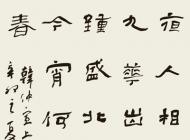 夜人相
九華出
鍾盛北
今宵何
春
韓仲宣上
辛卯之夏